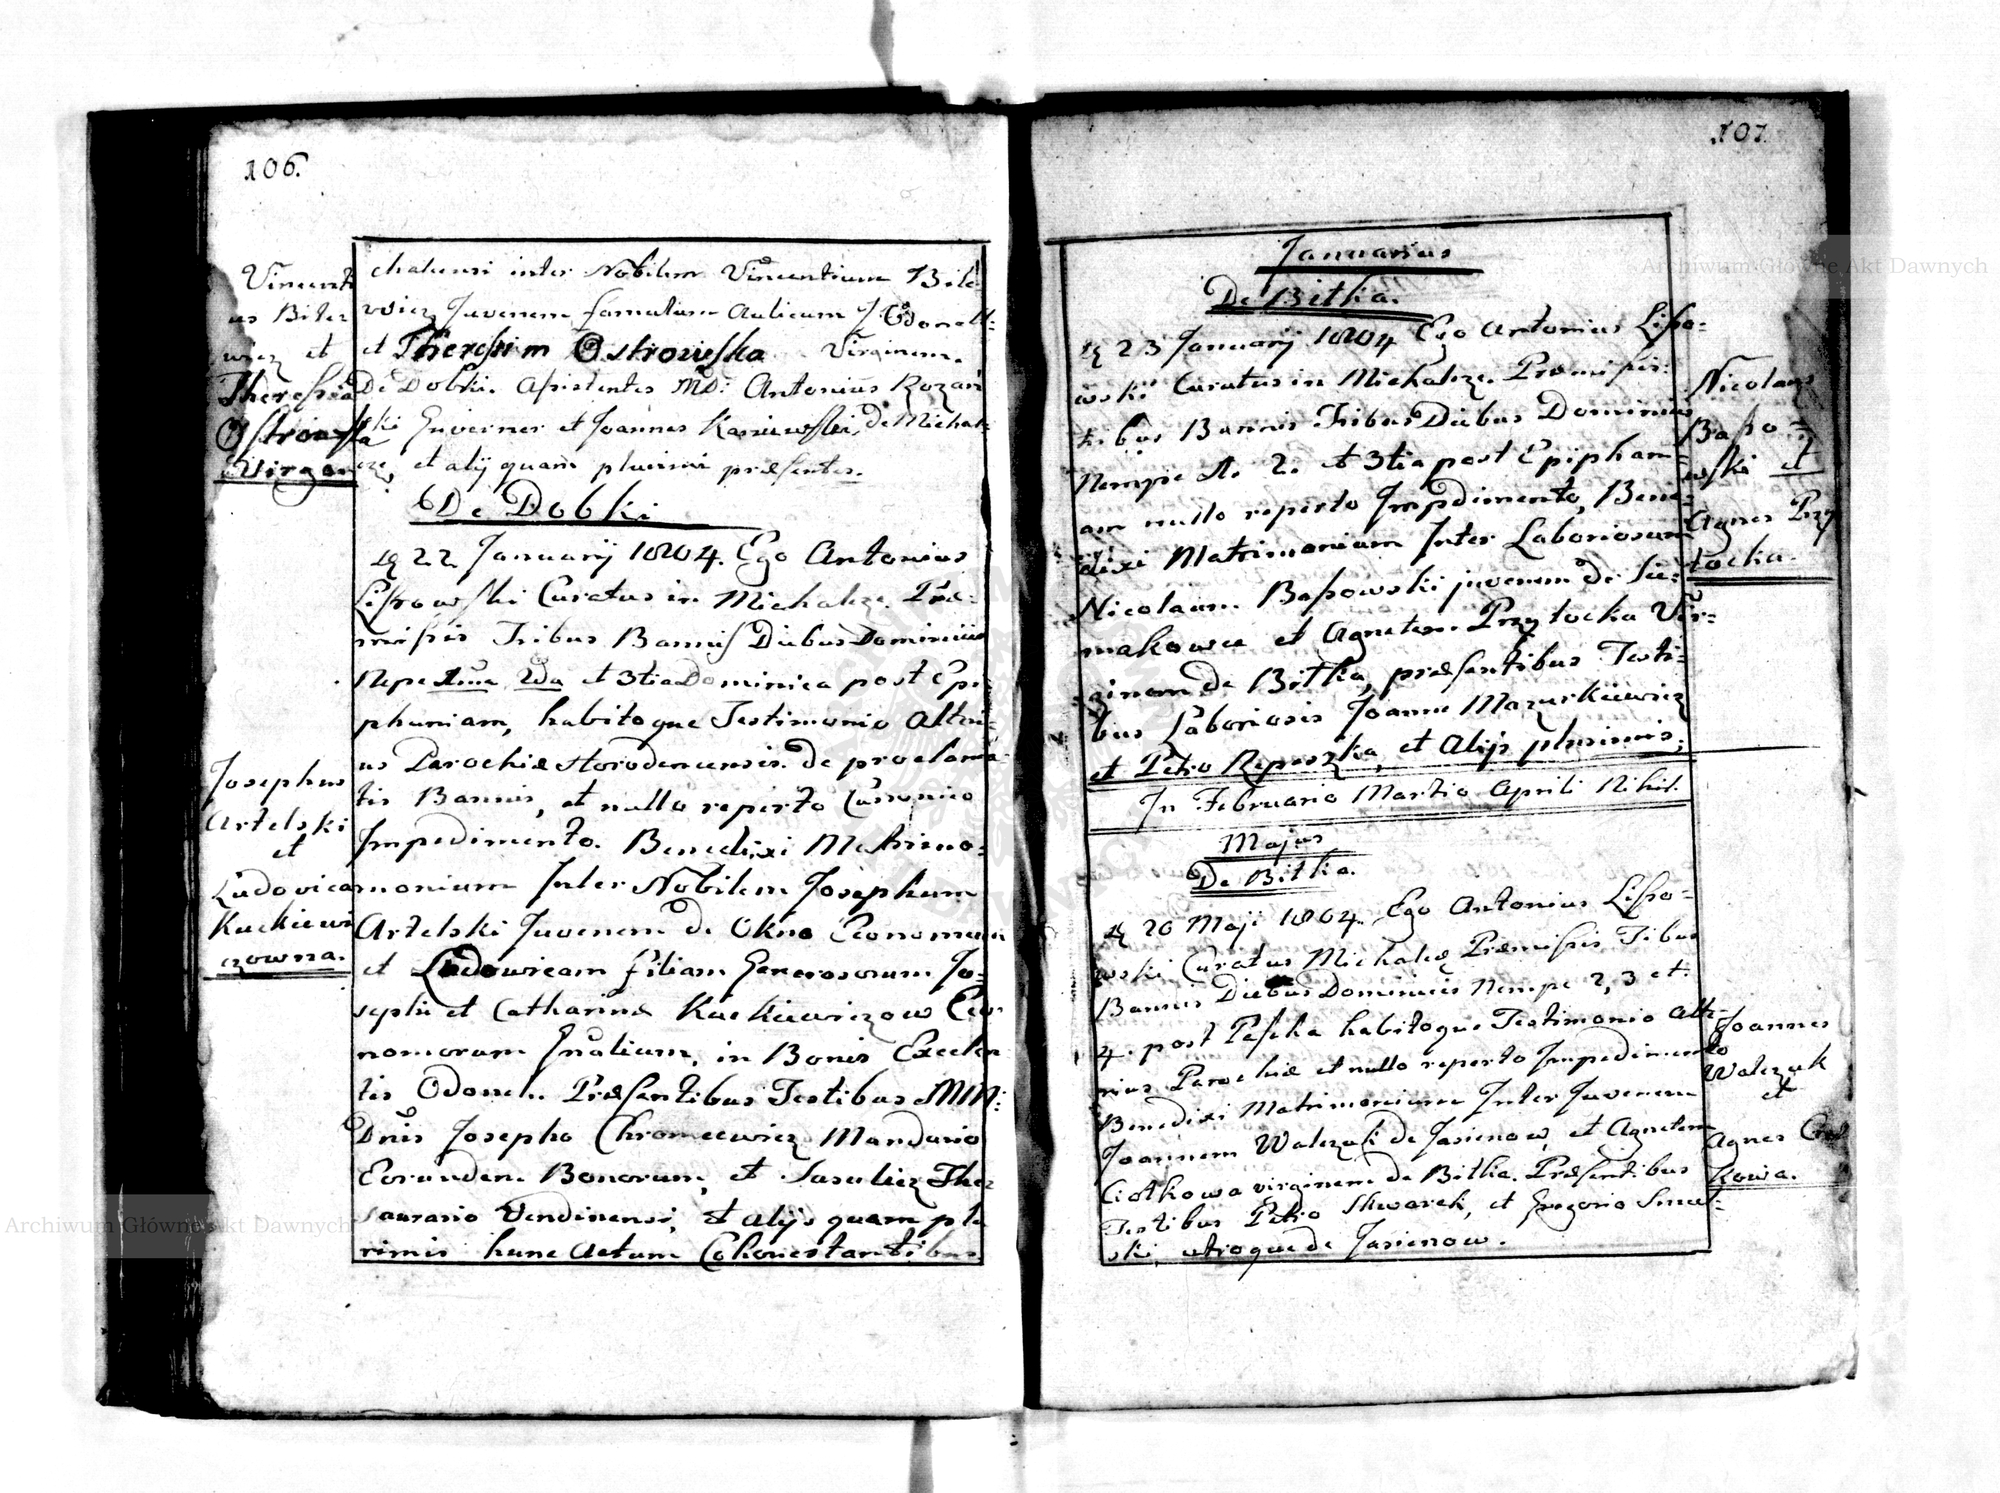 106.
Vincenti
us Biter
wicz et
Theresia
Ostrowska
Virgen
chalcensi inter Nobilem Vincentium Bite
wicz Juvenem famulum Aulicum J. Odonell:
et Theresim Ostrowska Virginem.
De Dobki. Assistentes MD: Antonius Rozań
ski Guverner et Joannes Kaniewski, de Michal:
cze, et alij quam plurimi præsentes.
De Dobki
22 Januarij 1804. Ego Antonius
Lissowski Curatus in Michalcze. Præ:
missis Tribus Bannis Diebus Dominicis
Nepe 1ma 2da et 3tia Dominica post Epi
phaniam, habitoque Testimonio Alteri:
us Parochiæ Horodencensis de proclama
tis Bannis, et nullo reperto Canonico
Impedimento. Benedixi Matrimo:
monium Inter Nobilem Josephum
Artelski Juvenem de Okno Economum
et Ludowicam filiam Generosorum Jo:
sephi et Catharinæ Kuckiewiczow Eco
nomorum Gnalium, in Bonis Excelen
tis Odonel. Præsentibus Testibus MM:
Dnis Josepho Chromecwicz Mandario
Eorundem Bonorum, et Sasulicz The
saurario Vendinensi, et alijs quam plu
rimis hunc Actum Cohonestantibus.
Josephus
Artelski
et
Ludovica
Kuckiewi
czowna.
107.
Januarius
De Bitka.
23 Januarij 1804 Ego Antonius Lisso:
wski Curatus in Michalcze. Præmissis:
tribus Bannis Tribus Diebus Dominicis
Nempe 1. 2. et 3tia post Epipham
am nullo reperto Impdimento, Bene:
dixi Matrimonium Inter Laboriosum
Nicolaum Bassowski juvenem de Sie:
makowce et Agnetem Przytocka Vir:
ginem de Bitka, præsentibus Testi:
bus Laboriosis Joanne Mazurkiewicz
et Petro Repeszka, et Alijs plurimis.
In Februario Martio Aprili Nihil.
Majus
De Bitka.
20 Maji 1804. Ego Antonius Lisso:
wski Curatus Michalcę Præmissis Tibus
Bannis Diebus Dominicis Nempe 2, 3 et
4. post Pascha habitoque Testimonio Alte:
rius Parochiæ et nullo reperto Impedimento
Benedixi Matrimonium Inter Juvenem
Joannem Walczuk de Jasienow, et Agnetem
Ciotkowa virginem de Bitka. Præsentibus
Testibus Petro Skwarek, et Gregorio Smol:
ski, utroque de Jasienow.
Nicolaus
Basso
wski et
Agnes Przy
tocka.
Joannes
Walczuk
et
Agnes
kowa.
Archiwum Główne Akt Dawnych
Archiwum Główne Akt Dawnych